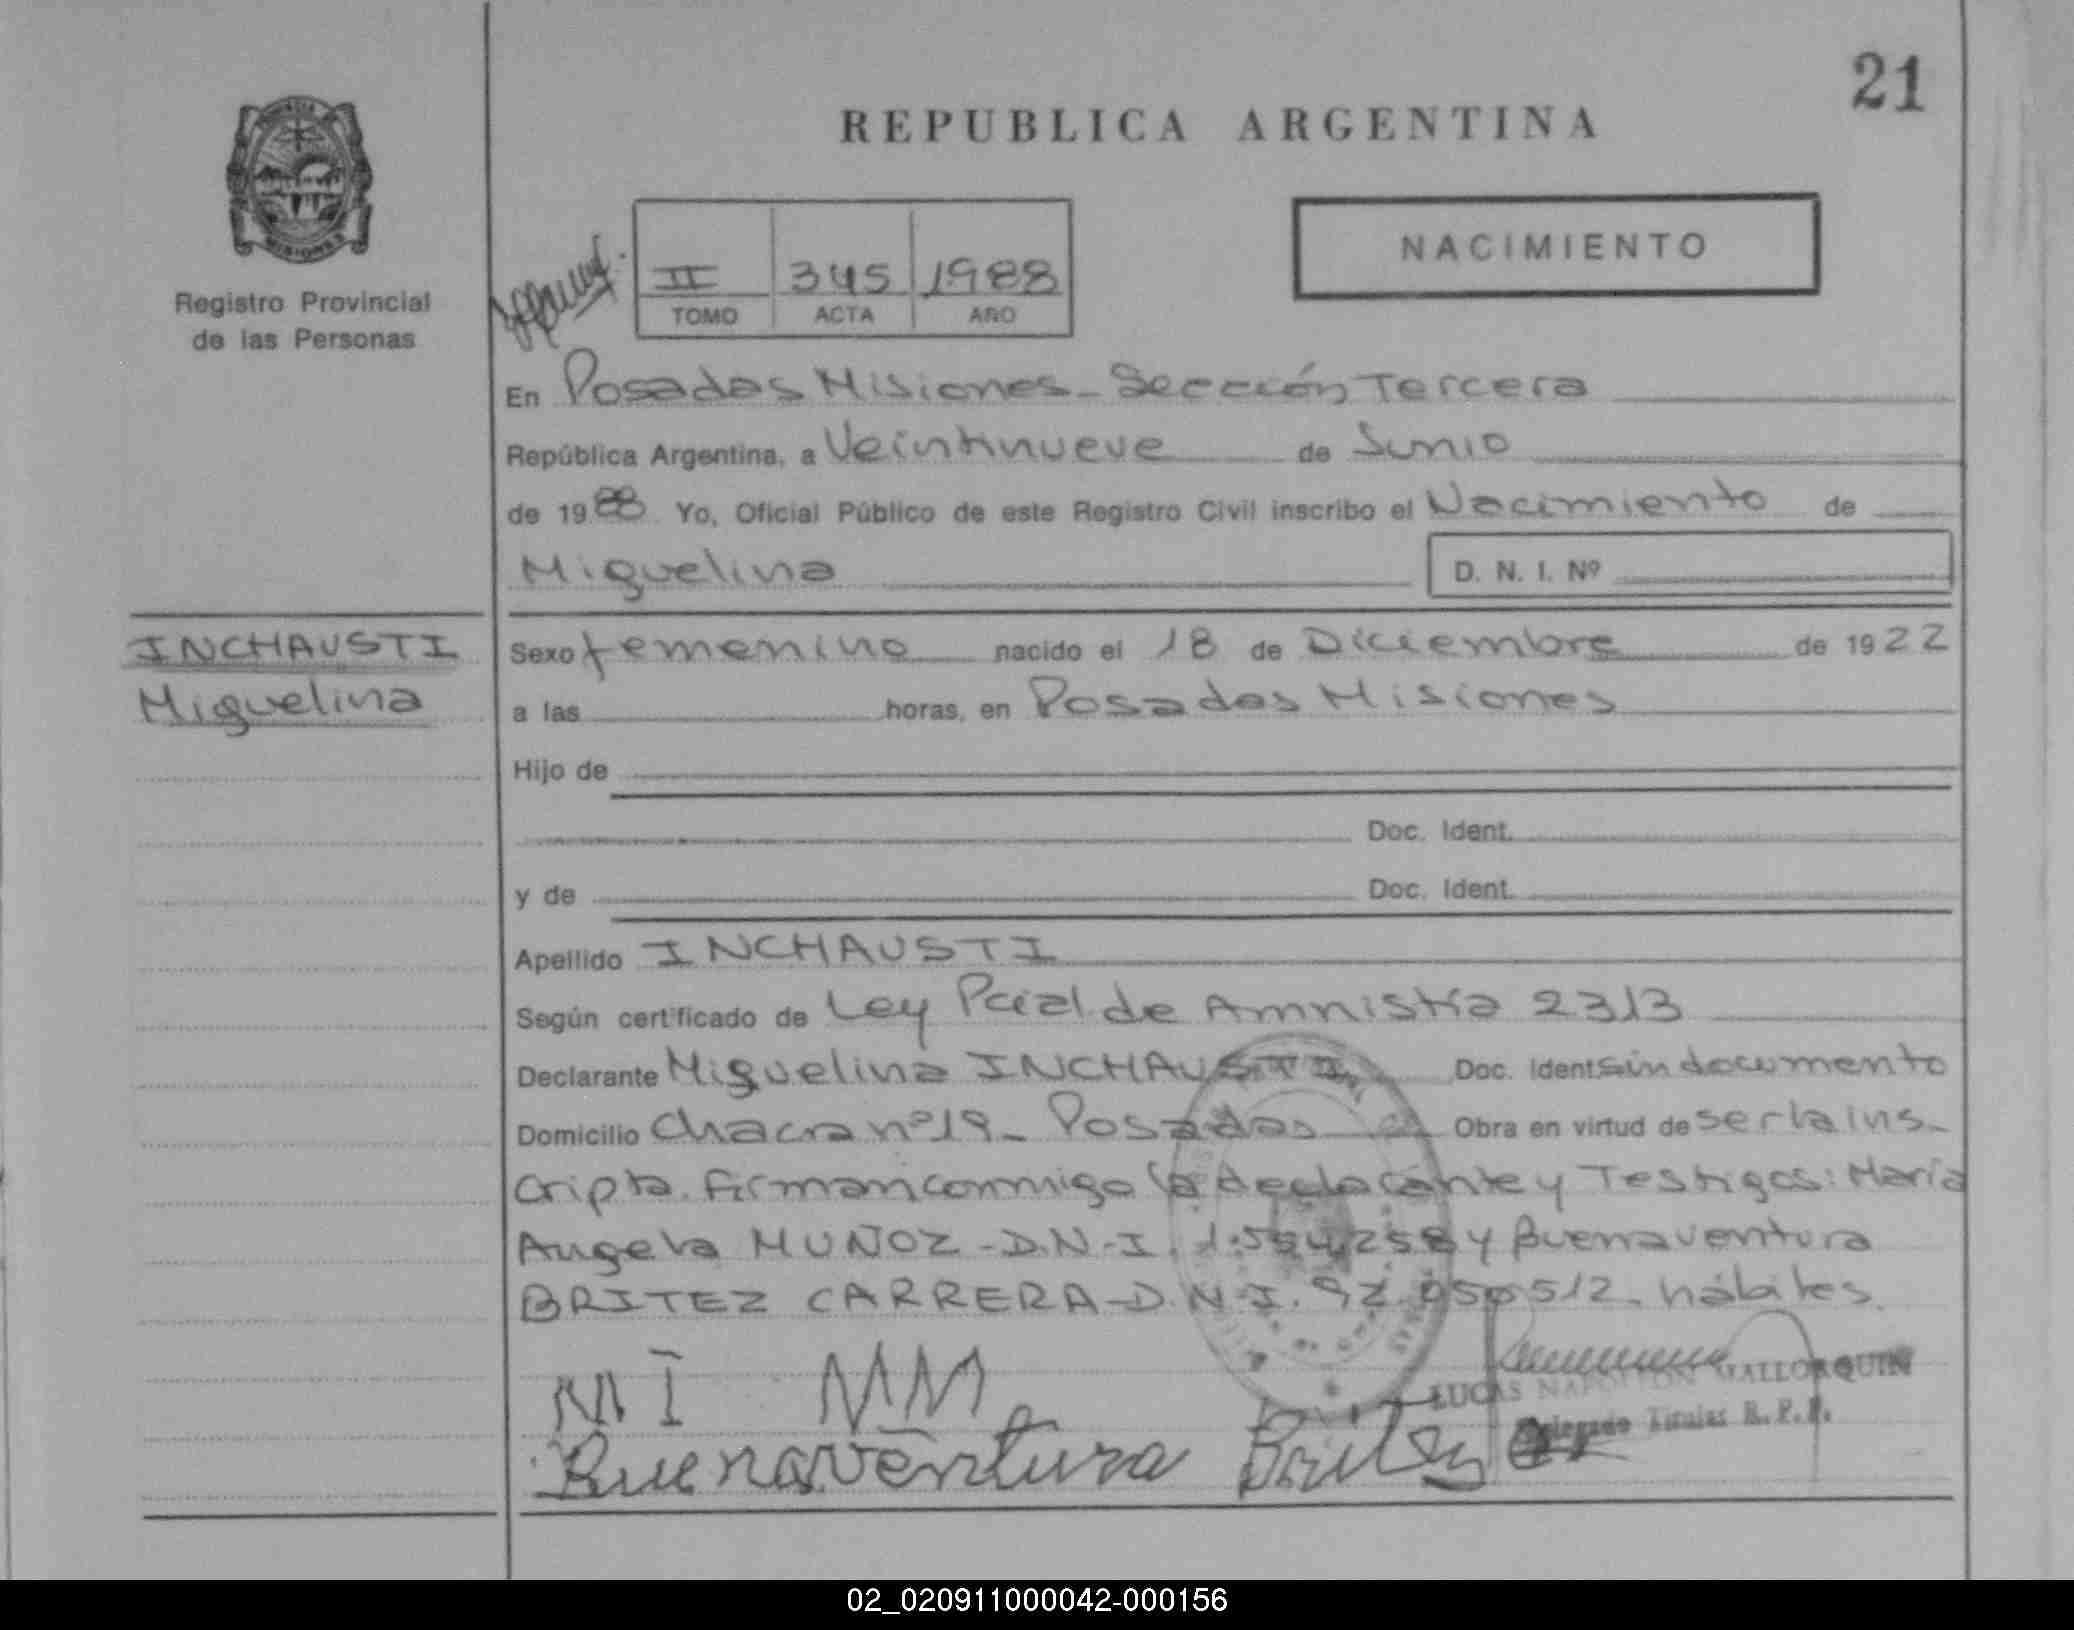 21
REPUBLICA ARGENTINA
Registro Provincial
de las Personas
II 345 1988
TOMO ACTA AÑO
NACIMIENTO
En Posadas Misiones - Sección Tercera
República Argentina, a Veintinueve de Junio
de 1988 Yo, Oficial Público de este Registro Civil inscribo el Nacimiento de
Miguelina D. N. I. Nº
INCHAUSTI
Miguelina
Sexo femenino nacido el 18 de Diciembre de 1922
a las horas, en Posadas Misiones
Hijo de
Doc. Ident.
y de Doc. Ident.
Apellido INCHAUSTI
Según certificado de Ley Pcial de Amnistía 2313
Declarante Miguelina INCHAUSTI Doc. Ident. sin documento
Domicilio Chacra nº 19 - Posadas Obra en virtud de ser la ins-
cripta. firman conmigo la declarante y Testigos: María
Angela MUÑOZ - D.N.I. y Buenaventura
BRITEZ CARRERA - D.N.I. 92.050512. hábiles.
MI MM
LUCAS NAPOLEON MALLORQUIN
Delegado Titular R. P. P.
Buenaventura Britez
02_020911000042-000156